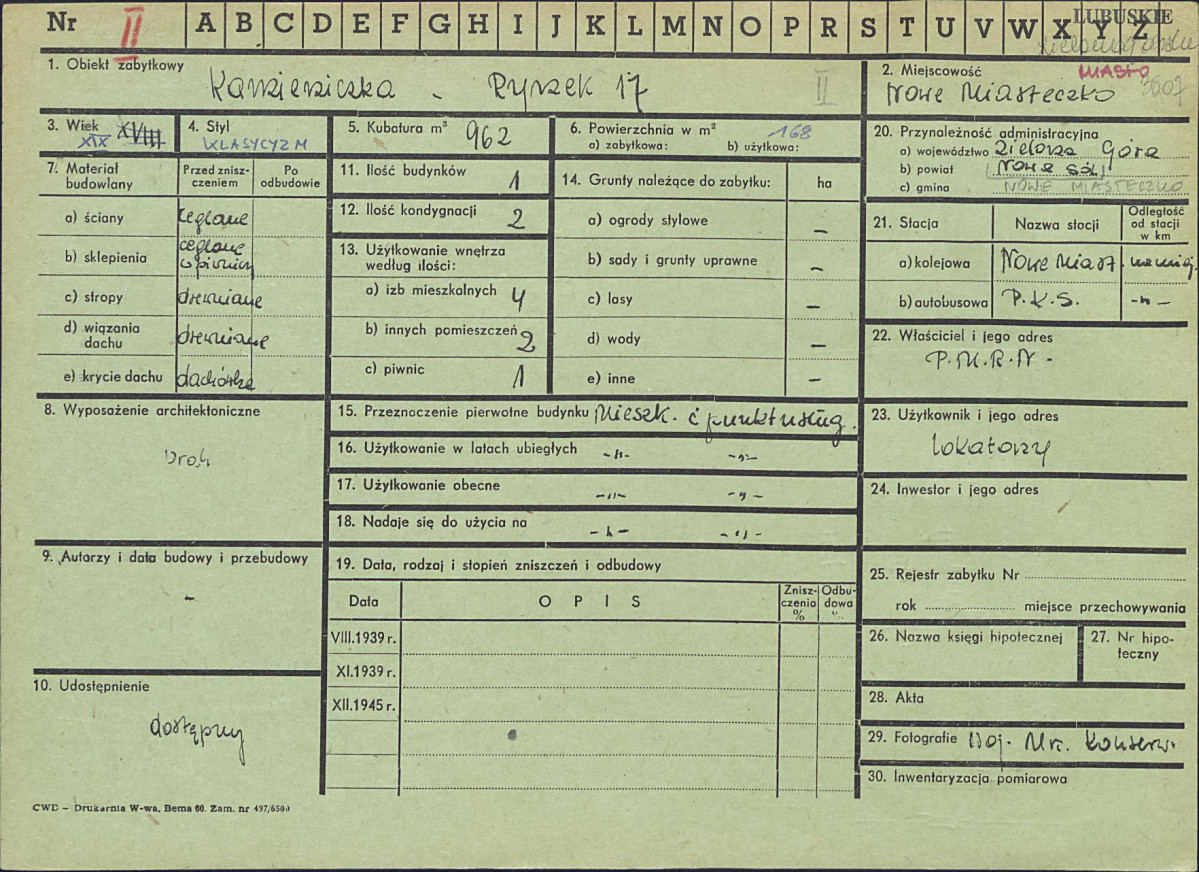 Nr II A B C D E F G H I J K L M N O P R S T U V W X Y Z
LUBUSKIE
1. Obiekt zabytkowy
Kamieniczka - Rynek 17 II
2. Miejscowość MIASTO
Nowe Miasteczko
3. Wiek
XIX XVIII
4. Styl
KLASYCYZM
5. Kubatura m³ 962
6. Powierzchnia w m² 168
a) zabytkowa: b) użytkowa:
20. Przynależność administracyjna
a) województwo Zielona Góra
b) powiat Nowa Sól
c) gmina NOWE MIASTECZKO
7. Materiał budowlany
Przed zniszczeniem
Po odbudowie
a) ściany ceglane
b) sklepienia ceglane w piwnicy
c) stropy drewniane
d) wiązania dachu drewniane
e) krycie dachu dachówka
11. Ilość budynków 1
12. Ilość kondygnacji 2
13. Użytkowanie wnętrza według ilości:
a) izb mieszkalnych 4
b) innych pomieszczeń 2
c) piwnic 1
14. Grunty należące do zabytku: ha
a) ogrody stylowe –
b) sady i grunty uprawne –
c) lasy –
d) wody –
e) inne –
21. Stacja
Nazwa stacji
Odległość od stacji w km
a) kolejowa Nowe Miast.
b) autobusowa P.K.S. -"-
22. Właściciel i jego adres
P.M.R.N -
8. Wyposażenie architektoniczne
brak
15. Przeznaczenie pierwotne budynku Mieszk. i punkt usług.
16. Użytkowanie w latach ubiegłych -"- -"-
17. Użytkowanie obecne -"- -"-
18. Nadaje się do użycia na -"- -"-
23. Użytkownik i jego adres
lokatorzy
24. Inwestor i jego adres
9. Autorzy i data budowy i przebudowy
-
19. Data, rodzaj i stopień zniszczeń i odbudowy
Data
O P I S
Zniszczenia %
Odbudowa %
VIII.1939 r.
XI.1939 r.
XII.1945 r.
25. Rejestr zabytku Nr
rok miejsce przechowywania
26. Nazwa księgi hipotecznej
27. Nr hipoteczny
10. Udostępnienie
dostępny
28. Akta
29. Fotografie Woj. Urz. Konserw.
30. Inwentaryzacja pomiarowa
CWD – Drukarnia W-wa, Bema 60. Zam. nr 497/6500